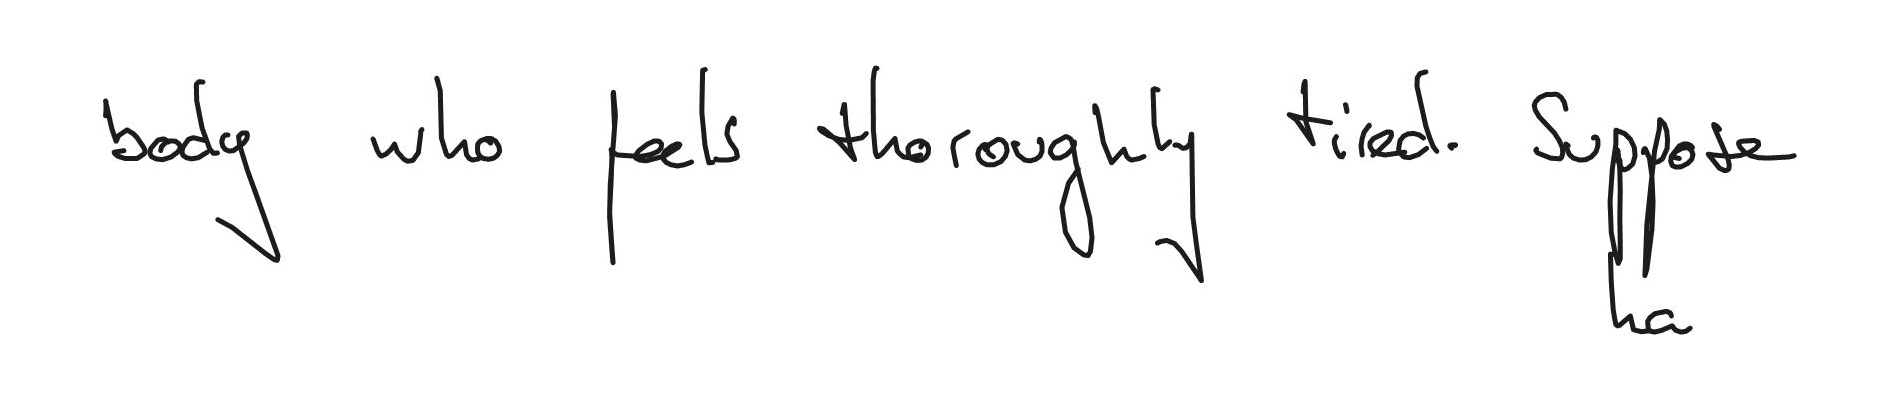 body who feels thoroughly tired. Suppose
ha